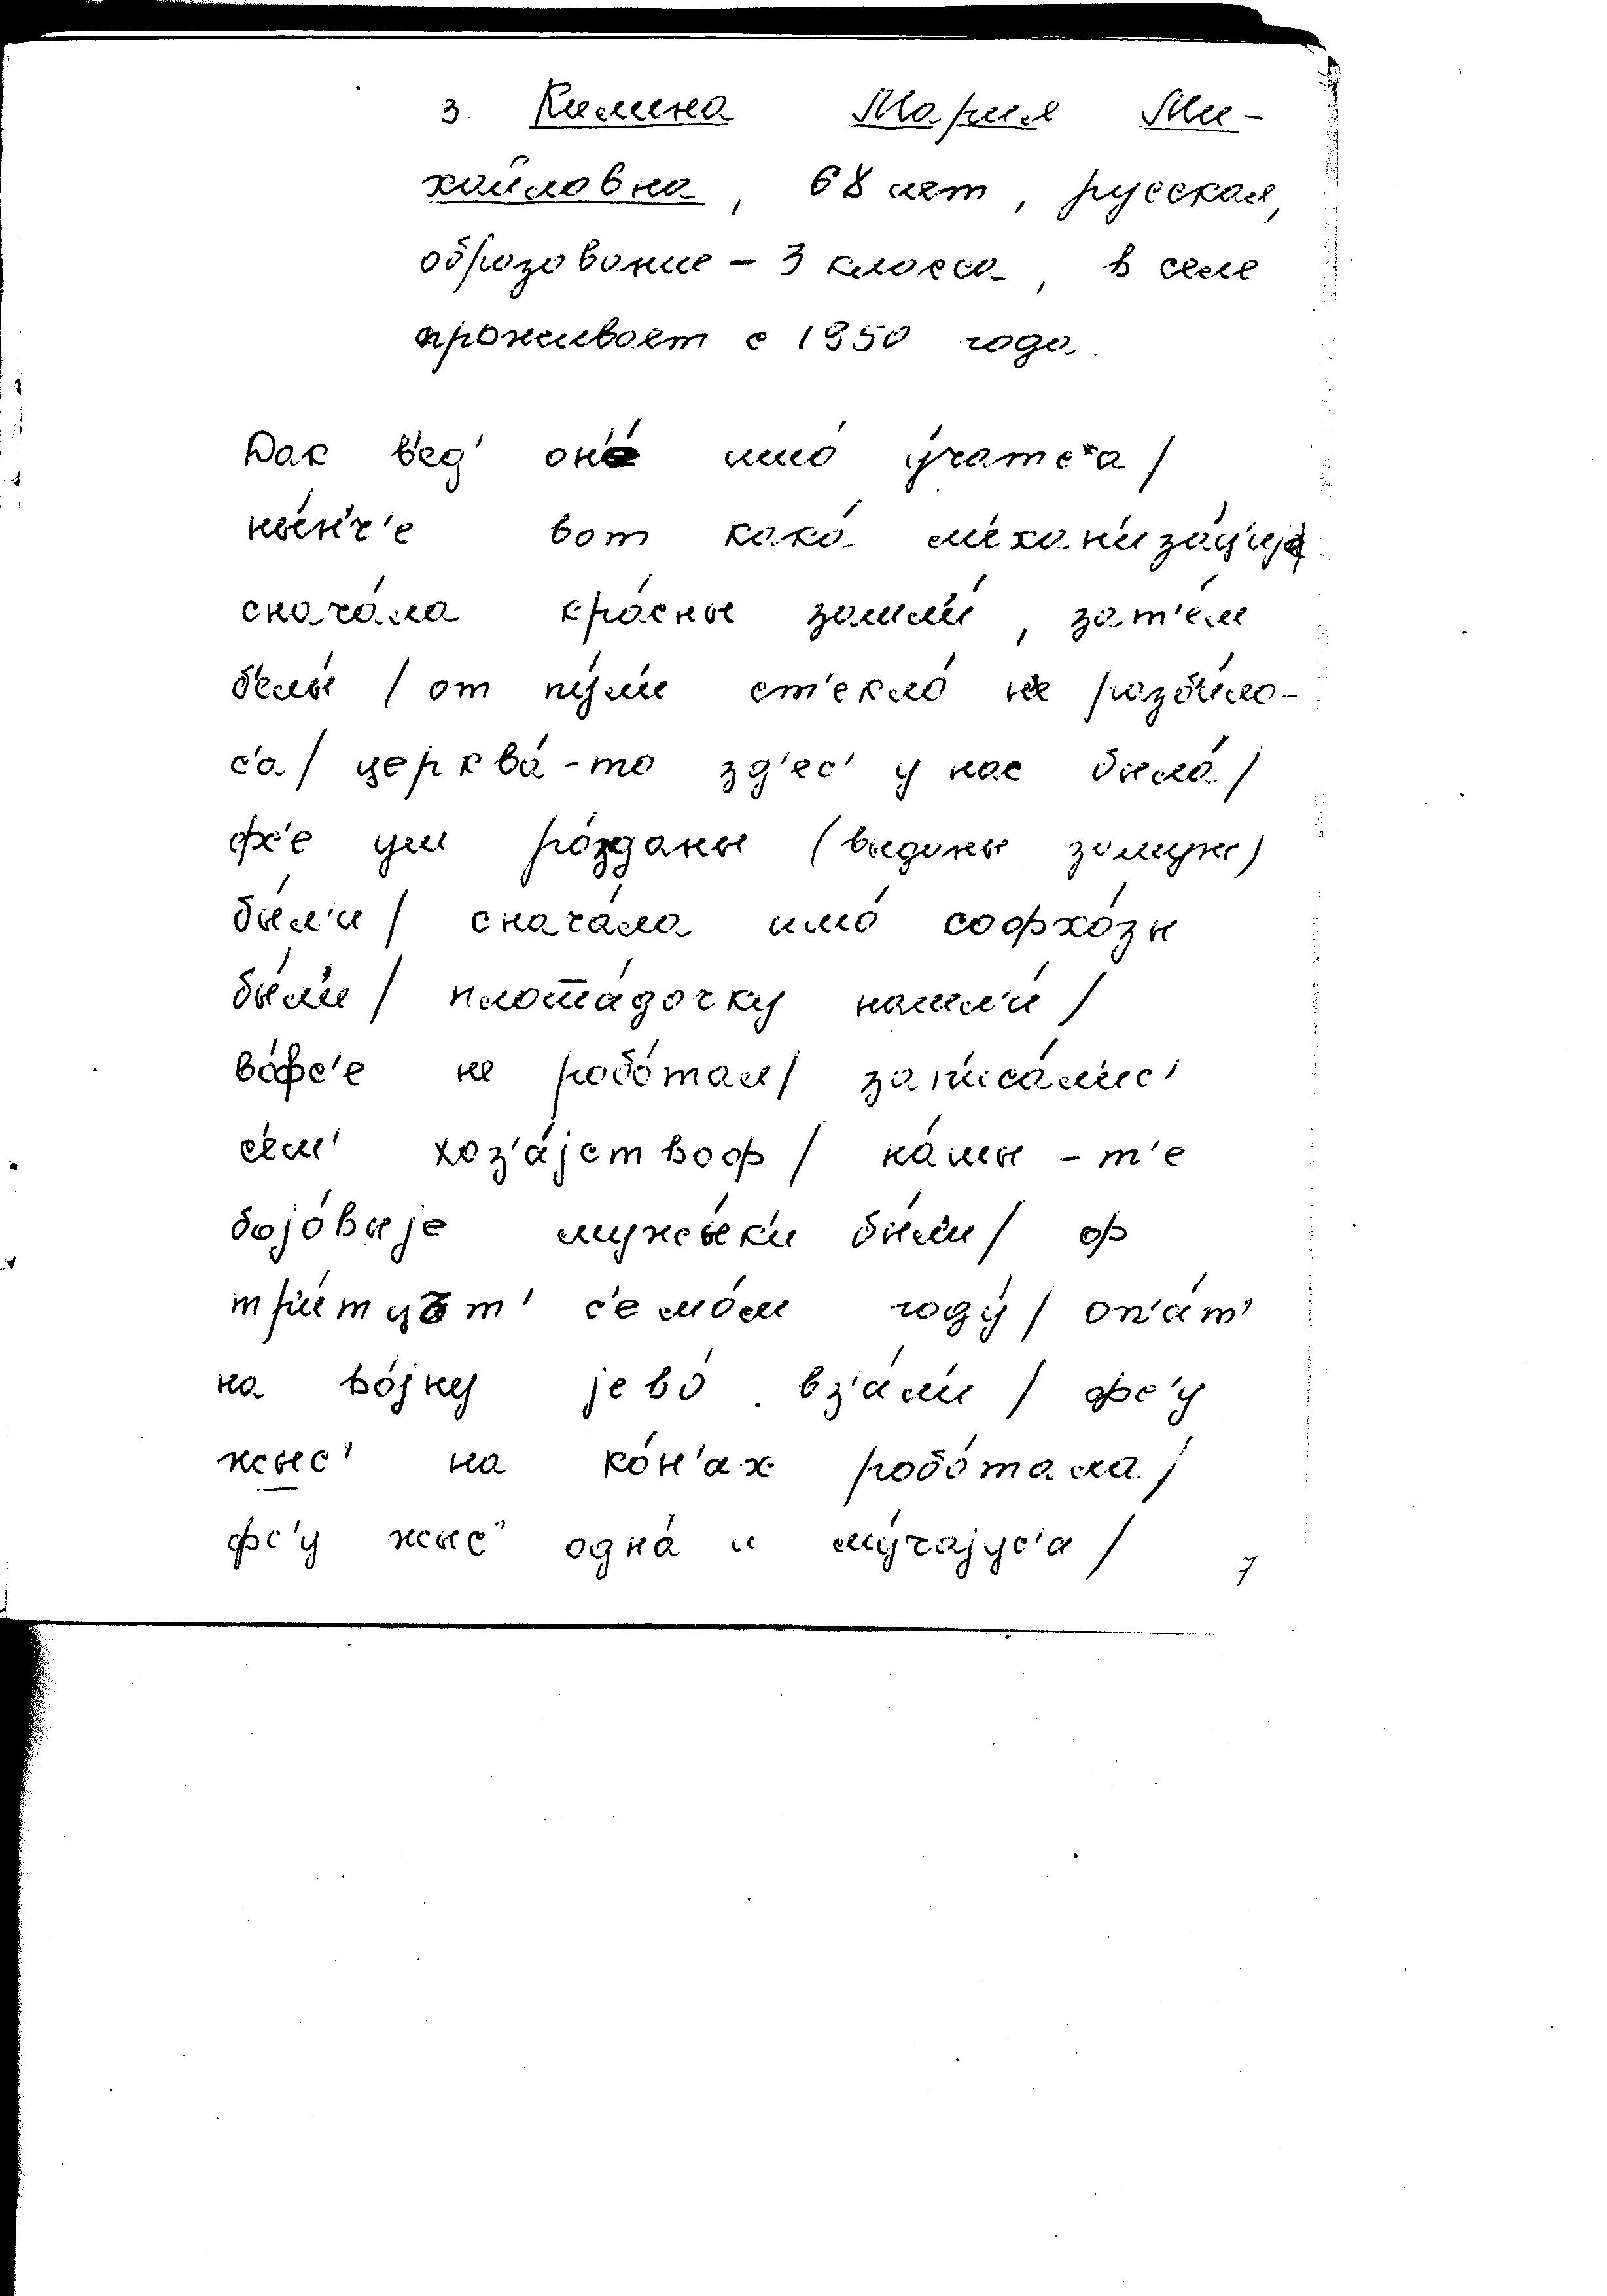 3. Килина Мария Ми-
хайловна, 68 лет, русская,
образование – 3 класса, в селе
проживает с 1950 года.
Дак в'ед' он'е́ што́ у́чатс'а /
ны́н'ч'е вот кака́ м'ехан'иза́ц'ија
снача́ла кра́сны зашл'и́, зат'е́м
б'е́лы / от пу́л'и ст'екло́ не разби́ло-
с'а / церква́-то зд'ес' у нас была́ /
фс'е уш ро́зданы (выданы замуж)
бы́л'и / снача́ла што́ софхо́зы
бы́л'и / плоша́дочку нашл'и́ /
во́фс'е не робо́тал / зап'иса́л'ис'
с'ем' хоз'а́јствоф / на́шы-т'е
бојо́выје мужык'и́ бы́л'и / ф
тр'и́тцот' с'емо́м году́ / оп'а́т'
на војну́ јево́ вз'а́л'и / фс'у
жыс' на ко́н'ах робо́тала /
фс'у жыс' одна́ и му́чајус'а /
7